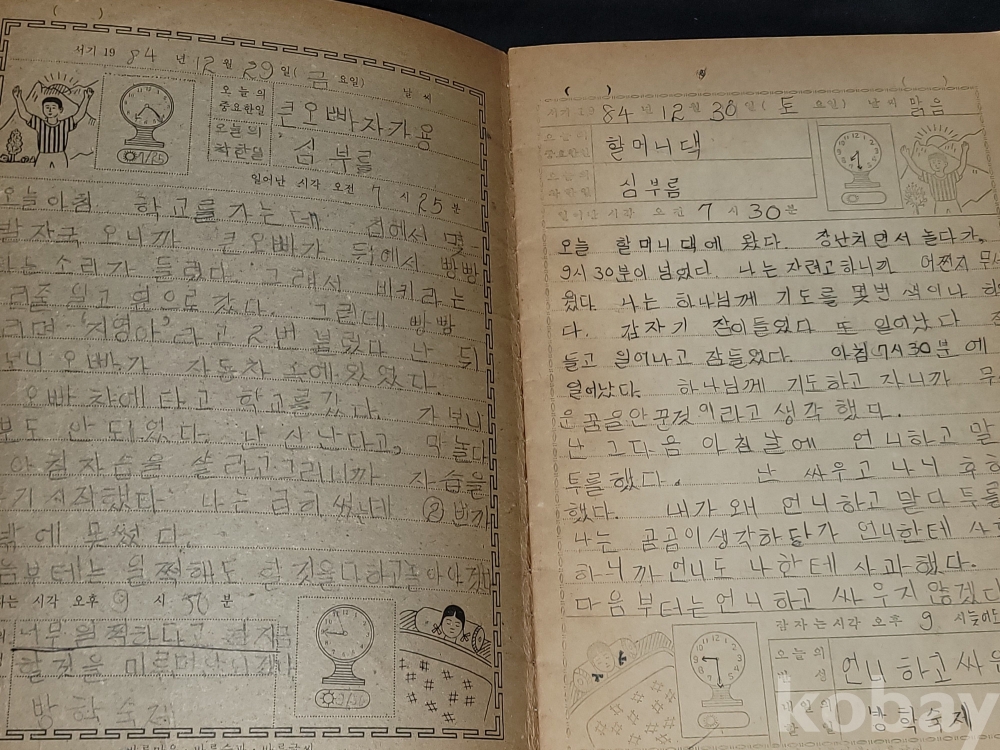 (    )
서기 19 84 년 12 월 29 일( 금 요일)    날 씨
오늘의 중요한일
큰오빠자가용
오늘의 착한일
심부름
일어난 시각 오전 7 시 25 분
7/25
오늘아침 학교를 가는데 집에서 몇
발자국 오니까 큰오빠가 뒤에서 빵빵
하는 소리가 들렸다. 그래서 비키라는
줄 알고 옆으로 갔다. 그런데 빵빵
리며 '지영아'라고 2번 불렀다 난 뒤
보니 오빠가 자동차 속에 있었다.
오빠 차에 타고 학교를 갔다. 가보니
안 되었다. 난 신난다고, 막놀다
아침자습을 살라고그러니까 자습을
기 시작했다 나는 급히 썼는데 ②번까
밖에 못썼다.
음부터는 일찍해도 할것을다하고놀아야겠다
자는 시각 오후 9 시 50 분
너무 일찍하다고
할것을 미루며
방학숙제
바른마음·바른습관·바른글씨
(    )    (    )
서기 19 84 년 12 월 30 일( 토 요일) 날 씨 맑음
오늘의 중요한일
할머니댁
오늘의 착한일
심부름
일어난 시각 오전 7 시 30 분
오늘 할머니댁에 왔다. 장난치면서 놀다가,
9시 30분이 넘었다. 나는 자려고하니까 어쩐지 무서
웠다 나는 하나님께 기도를 몇번 색이나 하
다. 갑자기 잠이들었다 또 일어났다 잠
들고 일어나고 잠들었다. 아침 7시30분에
일어났다. 하나님께 기도하고 자니까 무
운 꿈을안꾼것이라고 생각했다.
난 그다음 아침날에 언니하고 말
투를 했다. 난 싸우고 나니 후회
했다. 내가 왜 언니하고 말다투를
나는 곰곰이생각하다가 언니한테 사과
하니까 언니도 나한테 사과했다.
다음부터는언니하고 싸우지 않겠다
잠자는시각 오후 9 시
오늘의 반 성
언니하고싸우
내일의
방학숙제
kobay